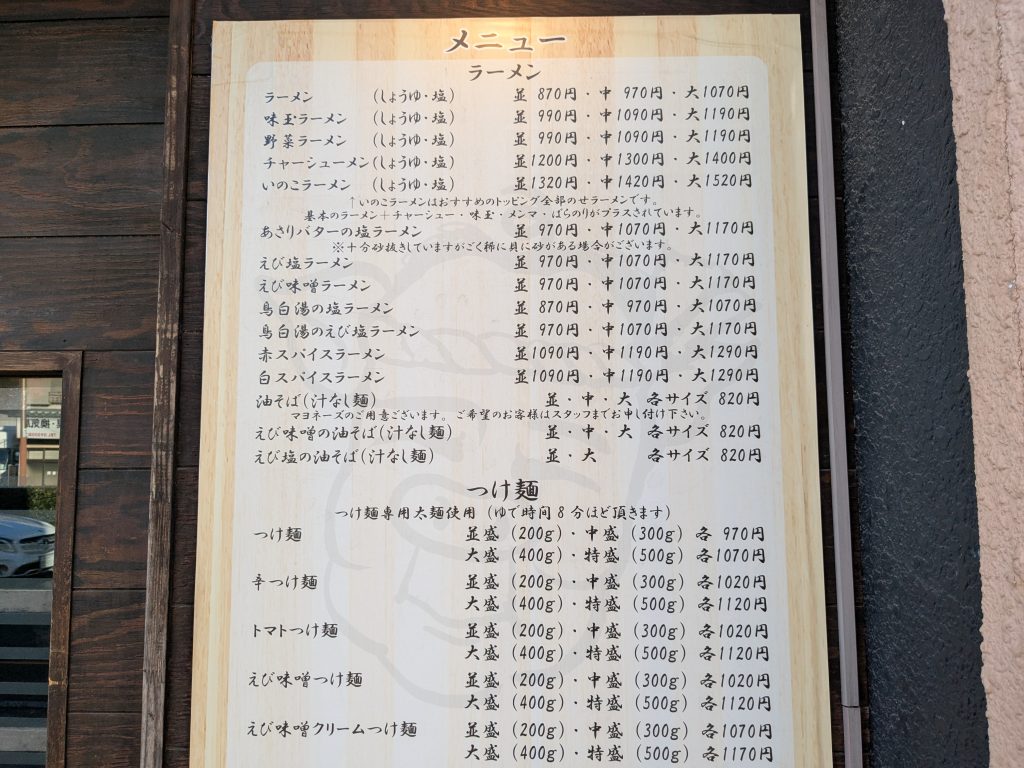 メニュー
ラーメン
ラーメン (しょうゆ・塩) 並 870円・中 970円・大1070円
味玉ラーメン (しょうゆ・塩) 並 990円・中1090円・大1190円
野菜ラーメン (しょうゆ・塩) 並 990円・中1090円・大1190円
チャーシューメン(しょうゆ・塩) 並1200円・中1300円・大1400円
いのこラーメン (しょうゆ・塩) 並1320円・中1420円・大1520円
↑いのこラーメンはおすすめのトッピング全部のせラーメンです。
基本のラーメン+チャーシュー・味玉・メンマ・ばらのりがプラスされています。
あさりバターの塩ラーメン 並 970円・中1070円・大1170円
※十分砂抜きしていますがごく稀に貝に砂がある場合がございます。
えび塩ラーメン 並 970円・中1070円・大1170円
えび味噌ラーメン 並 970円・中1070円・大1170円
鳥白湯の塩ラーメン 並 870円・中 970円・大1070円
鳥白湯のえび塩ラーメン 並 970円・中1070円・大1170円
赤スパイスラーメン 並1090円・中1190円・大1290円
白スパイスラーメン 並1090円・中1190円・大1290円
油そば(汁なし麺) 並・中・大 各サイズ 820円
マヨネーズのご用意ございます。ご希望のお客様はスタッフまでお申し付け下さい。
えび味噌の油そば(汁なし麺) 並・中・大 各サイズ 820円
えび塩の油そば(汁なし麺) 並・大 各サイズ 820円
つけ麺
つけ麺専用太麺使用 (ゆで時間8分ほど頂きます)
つけ麺 並盛 (200g)・中盛 (300g) 各 970円
大盛 (400g)・特盛 (500g) 各1070円
辛つけ麺 並盛 (200g)・中盛 (300g) 各1020円
大盛 (400g)・特盛 (500g) 各1120円
トマトつけ麺 並盛 (200g)・中盛 (300g) 各1020円
大盛 (400g)・特盛 (500g) 各1120円
えび味噌つけ麺 並盛 (200g)・中盛 (300g) 各1020円
大盛 (400g)・特盛 (500g) 各1120円
えび味噌クリームつけ麺 並盛 (200g)・中盛 (300g) 各1070円
大盛 (400g)・特盛 (500g) 各1170円